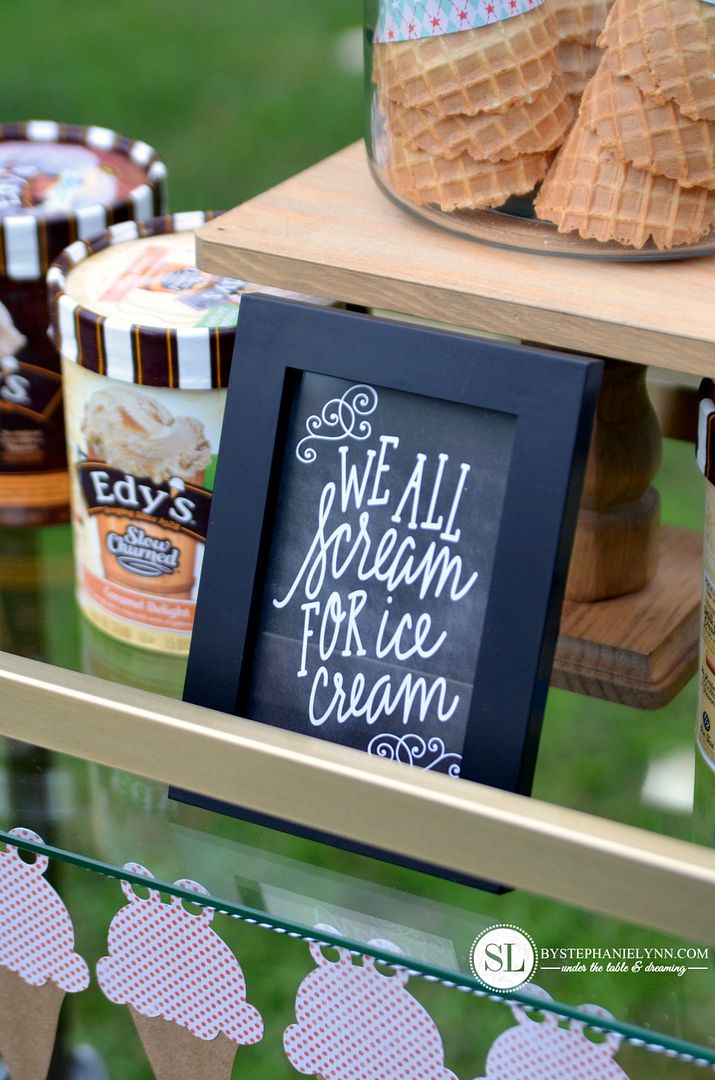 WE ALL
Scream
FOR ice
cream
Edy's
Slow
Churned
Caramel Delight
SL
BYSTEPHANIELYNN.COM
under the table & dreaming